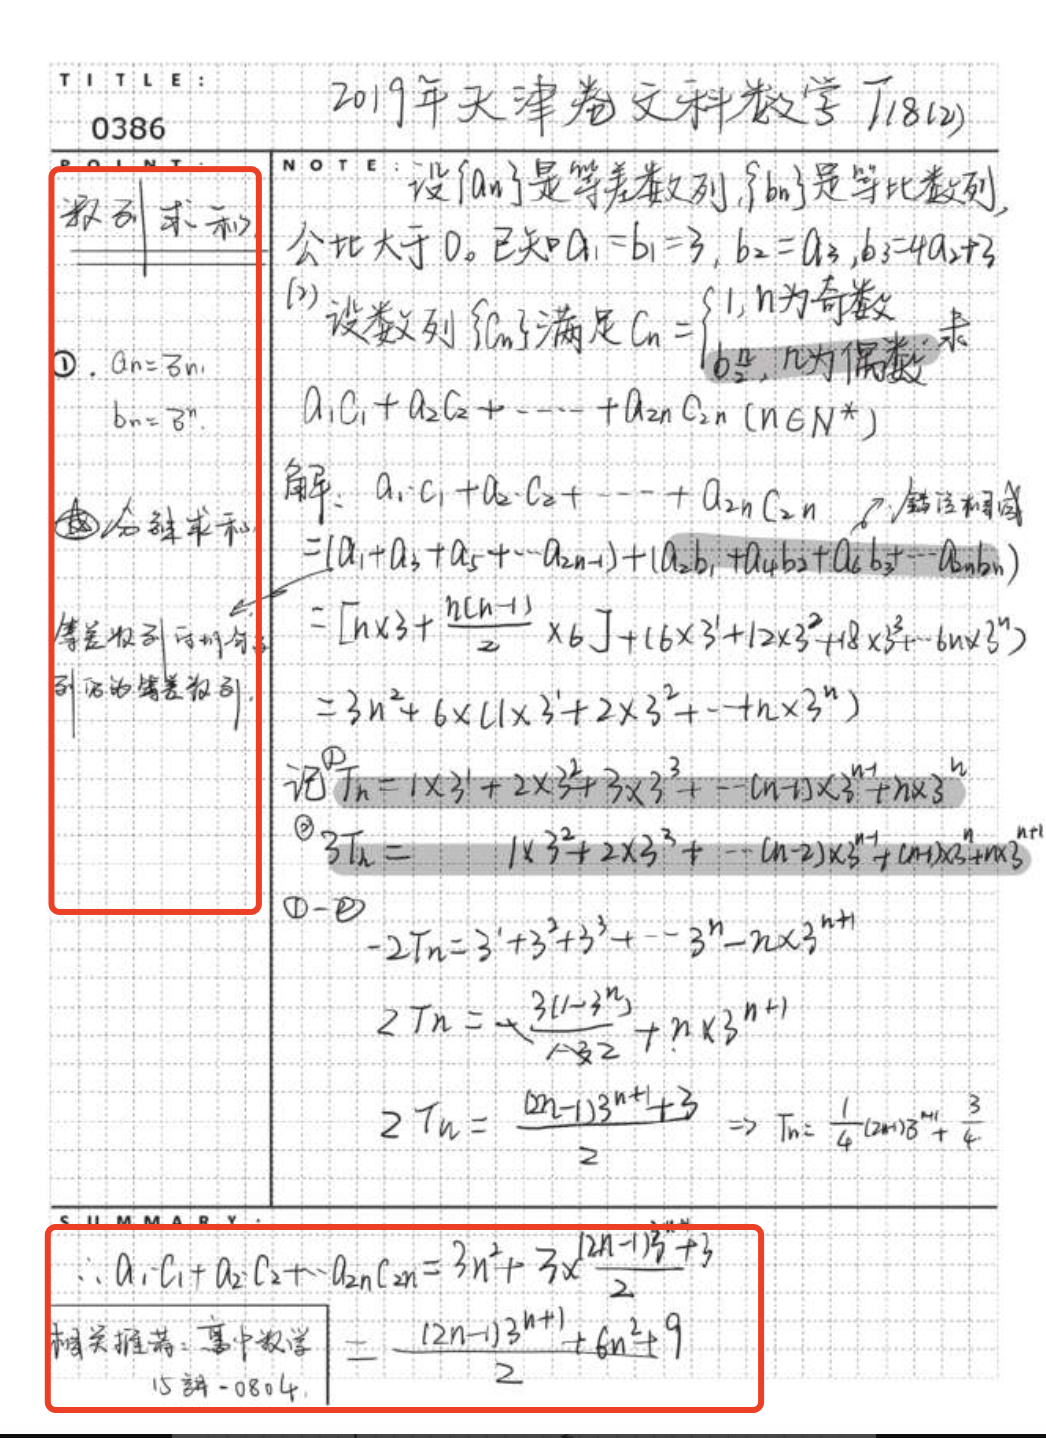 TITLE:
0386
2019年天津卷文科数学 T18(2)
POINT:
数列求和
①. an=3n,
bn=3ⁿ.
② 分组求和
等差数列
列后的等差数列.
NOTE:
设{an}是等差数列,{bn}是等比数列,
公比大于0。已知a₁=b₁=3, b₂=a₃, b₃=4a₂+3
(2) 设数列{Cn}满足Cn={1, n为奇数
b n/2, n为偶数 求
a₁C₁+a₂C₂+-----+a₂nC₂n (n∈N*)
解: a₁·C₁+a₂·C₂+----+a₂nC₂n
错位相减
=(a₁+a₃+a₅+---a₂n-₁)+(a₂b₁+a₄b₂+a₆b₃+---a₂nbn)
=[n×3+n(n-1)/2 ×6]+(6×3¹+12×3²+18×3³+---6n×3ⁿ)
=3n²+6×(1×3¹+2×3²+--+n×3ⁿ)
记①Tn=1×3¹+2×3²+3×3³+---(n-1)×3ⁿ⁻¹+n×3ⁿ
②3Tn= 1×3²+2×3³+---(n-2)×3ⁿ⁻¹+(n-1)×3ⁿ+n×3ⁿ⁺¹
①-②
-2Tn=3¹+3²+3³+---3ⁿ-n×3ⁿ⁺¹
2Tn=-3(1-3ⁿ)/2+n×3ⁿ⁺¹
2Tn=(2n-1)3ⁿ⁺¹+3/2 => Tn=1/4(2n-1)3ⁿ⁺¹+3/4
SUMMARY:
∴a₁·C₁+a₂·C₂+---a₂nC₂n=3n²+3×(2n-1)3ⁿ⁺¹+3/2
=(2n-1)3ⁿ⁺¹+6n²+9/2
相关推荐: 高中数学
15講-0804.